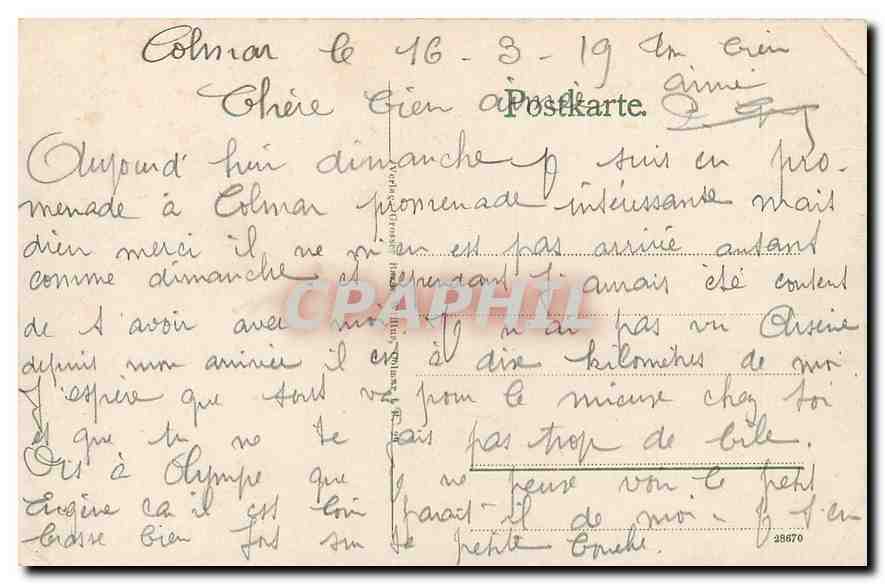 Colmar le 16-3-19 Ton bien
aimé
Chère bien aimée
Postkarte.
Aujourd'hui dimanche je suis en pro-
menade à Colmar promenade intéressante mais
dieu merci il ne m'en est pas arrivée autant
comme dimanche et cependant j'aurais été content
de t'avoir avec moi je n'ai pas vu Arsène
depuis mon arrivée il est à dixe kilomètres de moi
J'espère que tout va pour le mieux chez toi
et que tu ne te fais pas trop de bile.
Dis à Olympe que je ne peux voir le petit
Eugène car il est loin parait-il de moi. Je t'em
brasse bien fort sur ta petite bouche.
28670
CPAPHIL